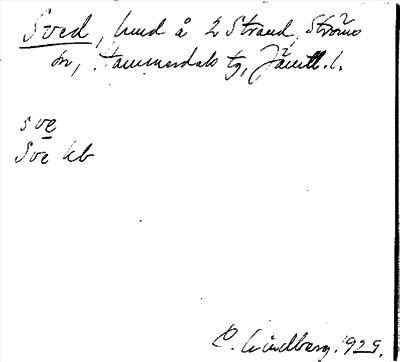 Sved, hmd å 2 Strand, Ströms
sn, Hammerdals tg, Jämtl. l.
sve
Sve hb
C. Lindberg. 1929.